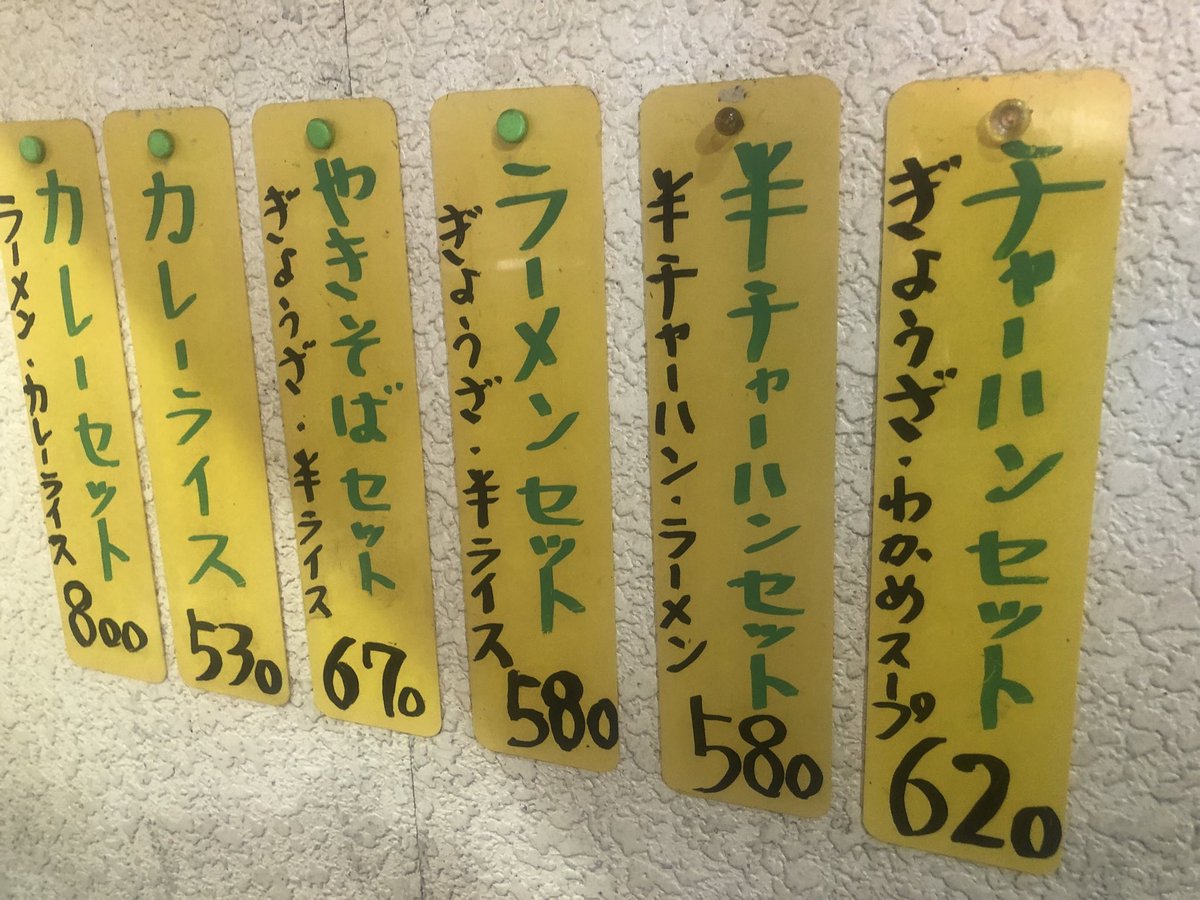 チャーハンセット
ぎょうざ・わかめスープ
620
半チャーハンセット
半チャーハン・ラーメン
580
ラーメンセット
ぎょうざ・半ライス
580
やきそばセット
ぎょうざ・半ライス
670
カレーライス
530
カレーセット
ラーメン・カレーライス
800